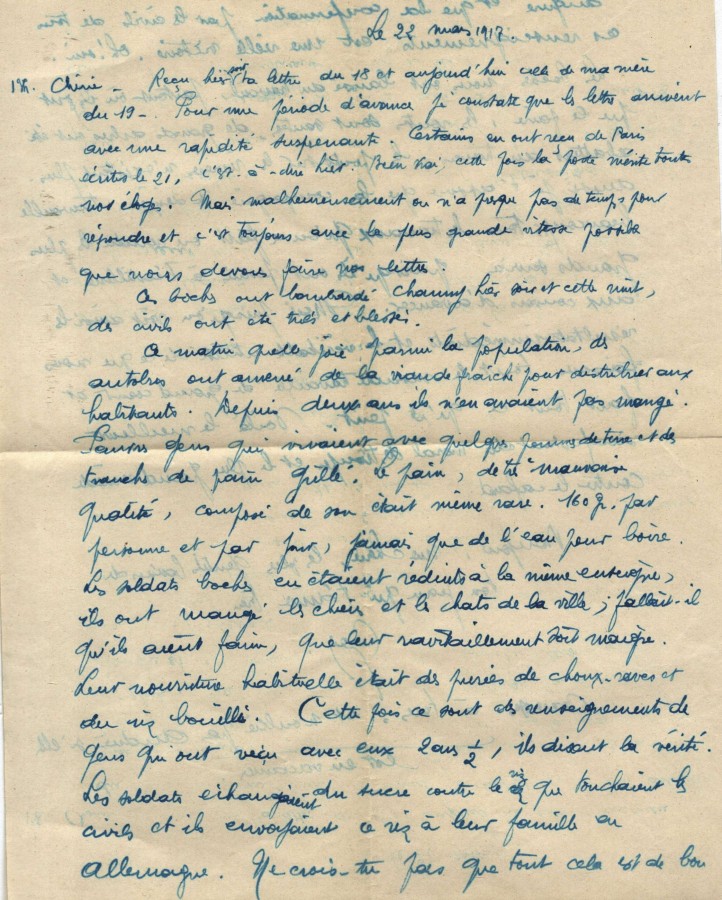 Le 22 mars 1917.
Chérie – Reçu hier soir ta lettre du 18 et aujourd'hui celle de ma mère
du 19 –. Pour une période d'avance je constate que les lettre arrivent
avec une rapidité surprenante. Certains en ont reçu de Paris
écrites le 21, c'est-à-dire hier. Bien vrai, cette fois la poste mérite toutes
nos éloges. Mais malheureusement on n'a presque pas de temps pour
répondre et c'est toujours avec la plus grande vitesse possible
que nous devons faire nos lettres.
Ces boches ont bombardé Chauny hier soir et cette nuit,
des civils ont été tués et blessés.
Ce matin quelle joie parmi la population, des
autobus ont amené de la viande fraîche pour distribuer aux
habitants. Depuis deux ans ils n'en avaient pas mangé.
Pauvres gens qui vivaient avec quelques pommes de terre et des
tranches de pain grillé. Le pain, de très mauvaise
qualité, composé de son était même rare. 160 g. par
personne et par jour, jamais que de l'eau pour boire.
Les soldats boches en étaient réduits à la même enseigne,
ils ont mangé les chiens et les chats de la ville ; fallait-il
qu'ils aient faim, que leur ravitaillement soit maigre.
Leur nourriture habituelle était des purées de choux-raves et
du riz bouilli. Cette fois ce sont des renseignements de
gens qui ont vécu avec eux 2 ans ½, ils disent la vérité.
Les soldats échangeaient du sucre contre le riz que touchaient les
civils et ils envoyaient ce riz à leur famille en
Allemagne. Ne crois-tu pas que tout cela est de bon